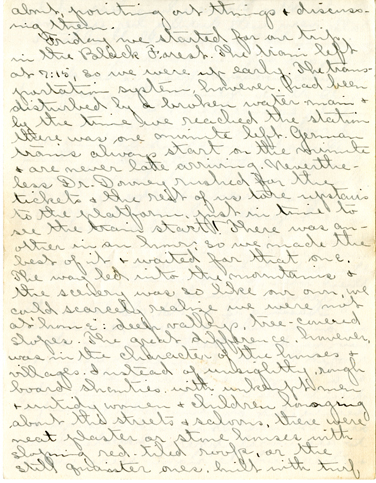 about, pointing out things & discuss-
ing them.
Friday, we started for our trip
in the Black Forest. The train left
at 7:15, so we were up early. The trans-
portation system, however, had been
disturbed by a broken water-main &
by the time we reached the station
there was one minute left. German
trains always start on the minute
& are never late arriving. Neverthe-
less Dr. rushed for the
tickets & the rest of us tore upstairs
to the platform, just in time to
see the train start! There was an-
other in an hour, so we made the
best of it & waited for that one.
The way led into the mountains &
the scenery was so like our own, we
could scarcely realize we were not
at home: deep valleys, tree-covered
slopes. The great difference, however,
was in the character of the houses &
villages. Instead of unsightly, rough
board shanties with unkempt men
& untidy women & children lounging
about the streets & saloons, there were
neat plaster or stone houses with
sloping red-tiled roofs, or the
still quainter ones, built with turf